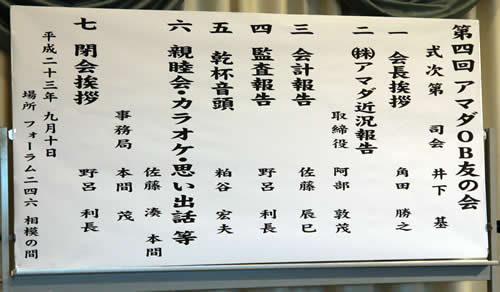 第四回 アマダOB友の会
式次第 司会 井下 基
一 会長挨拶 角田 勝之
二 ㈱アマダ近況報告
取締役 阿部 敦茂
三 会計報告 佐藤 辰巳
四 監査報告 野呂 利長
五 乾杯音頭 粕谷 宏夫
六 親睦会・カラオケ・思い出話 等
佐藤 湊 本間
事務局 本間 茂
七 閉会挨拶 野呂 利長
平成二十三年 九月十日
場所 フォーラム二四六 相模の間